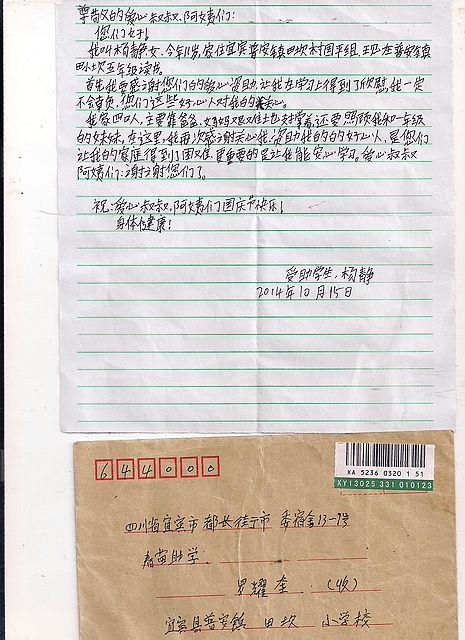 尊敬的爱心叔叔、阿姨们:
您们好!
我叫杨静,女,今年11岁,家住宜宾普安镇田坎村国平组,现在普安镇
田小坎五年级读书。
首先我要感谢您们的爱心资助,让我在学习上得到了欣慰,我一定
不会辜负,您们这些好心人对我的关心。
我家四人,主要靠爸爸,妈妈又住
的妹妹,在这里,我再次感谢关心我资助我的的好心人,是您们
让我的家庭得到了困难,更重要的是让我能安心学习。爱心叔叔
阿姨们:谢谢您们了。
祝:爱心叔叔,阿姨们国庆节快乐!
身体健康!
受助学生:杨静
2014年10月15日
644000
XA 5236 0320 1 51
XY13025 331 010123
四川省宜宾市 市 委宿舍13-7号
春苗助学
罗耀奎 (收)
宜宾县普安镇 田坎 小学校